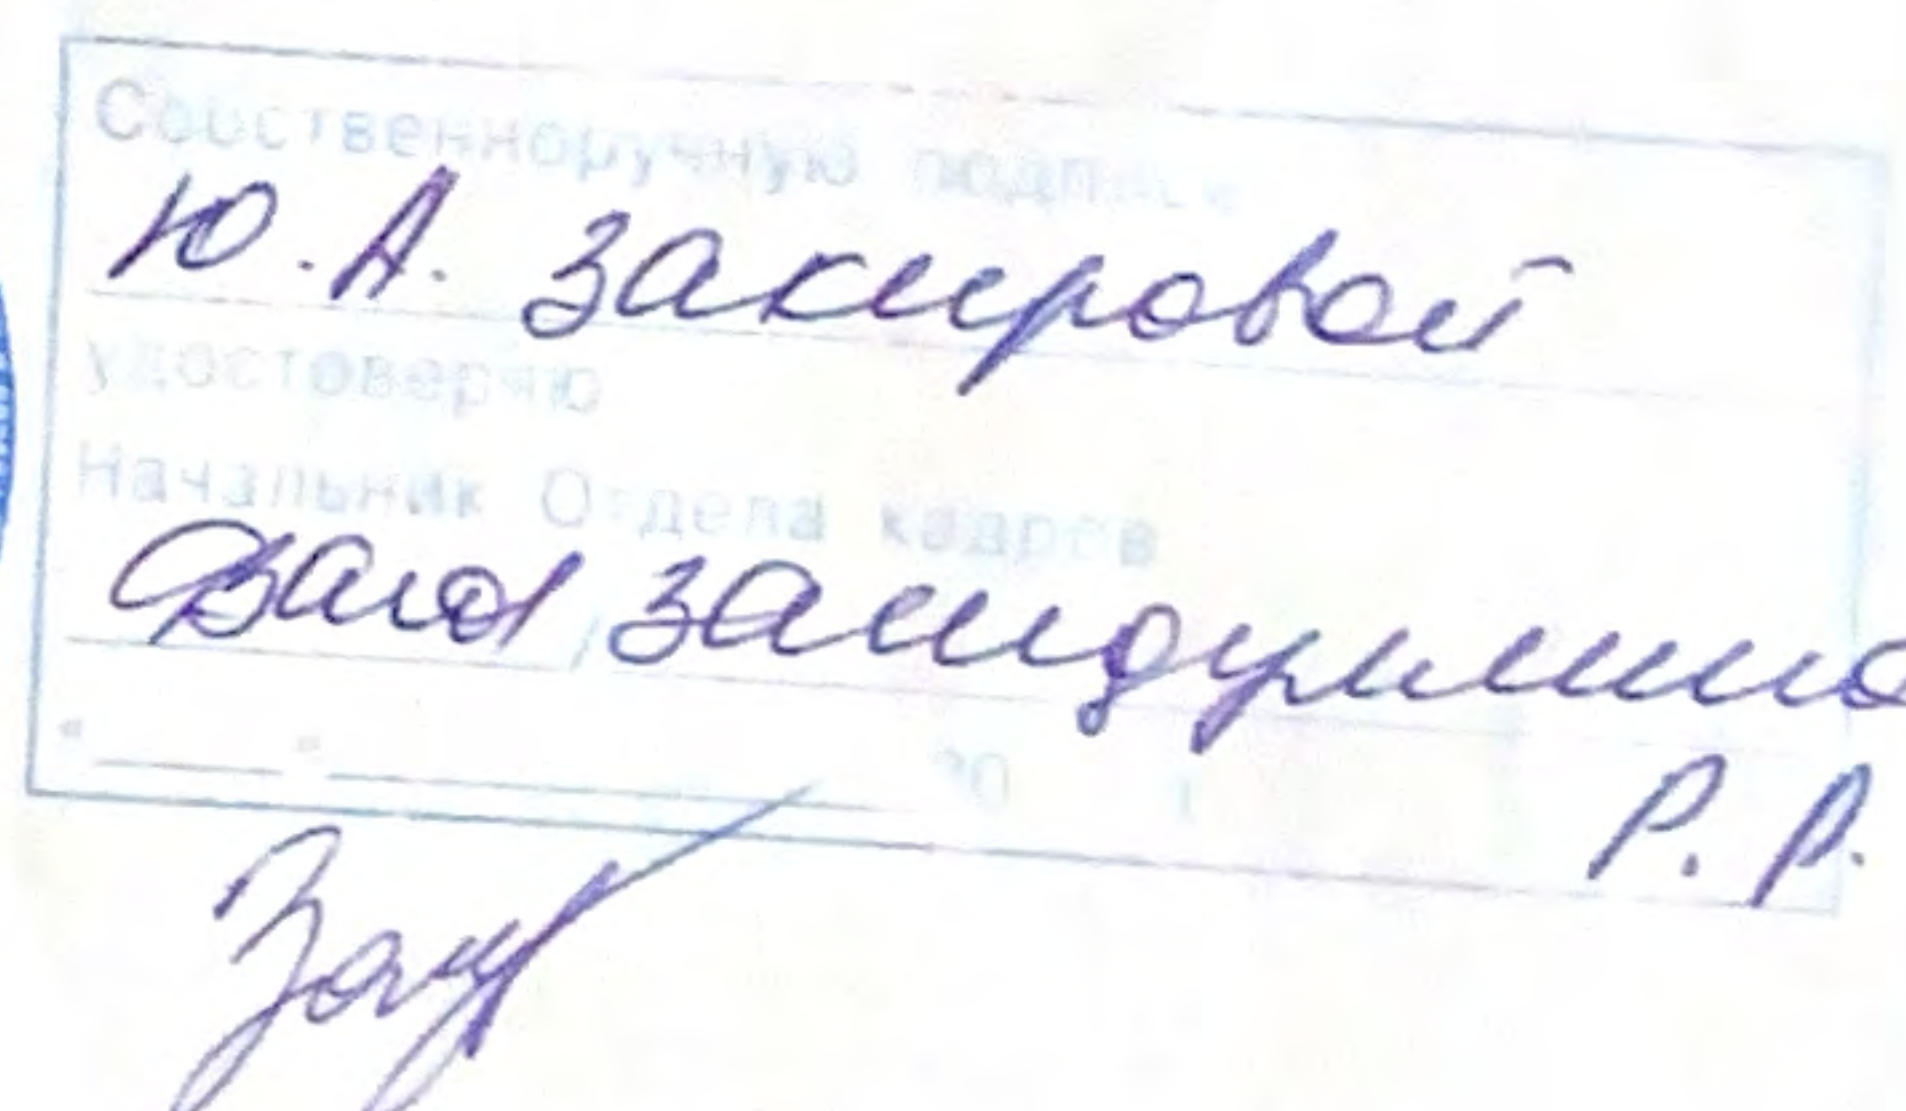 Собственноручную подпись
Ю. А. Закировой
удостоверяю
Начальник Отдела кадров
/ Зайдуллина
" " 20 г.
Р. Р.